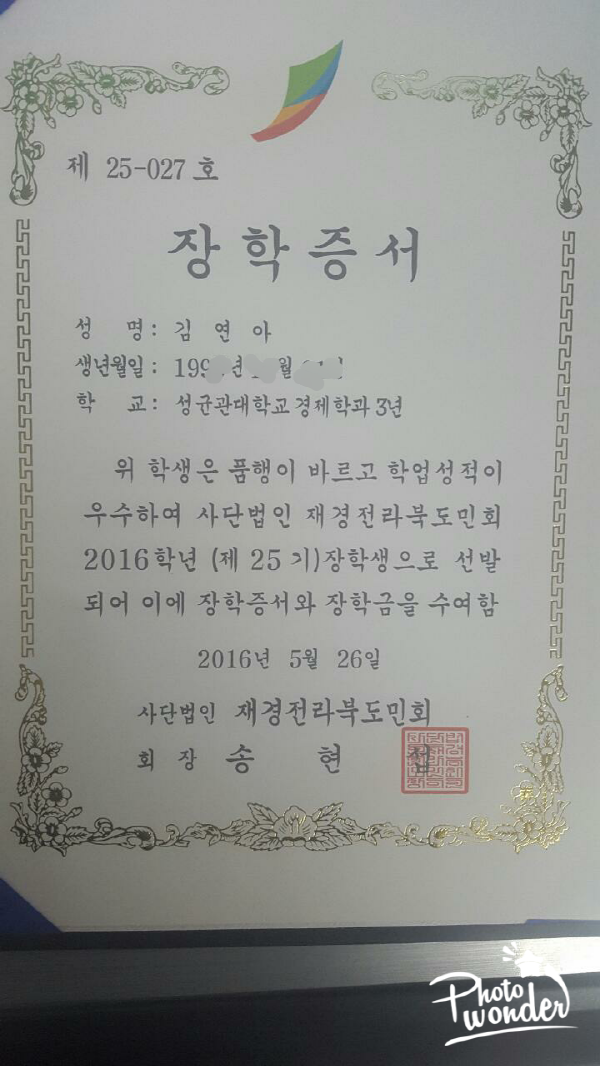 제 25-027 호
장학증서
성 명 : 김 연 아
생년월일 : 199 년 월
학 교 : 성균관대학교 경제학과 3년
위 학생은 품행이 바르고 학업성적이
우수하여 사단법인 재경전라북도민회
2016학년 (제 25 기)장학생으로 선발
되어 이에 장학증서와 장학금을 수여함
2016년 5월 26일
사단법인 재경전라북도민회
회 장 송 현 섭
Photo
wonder